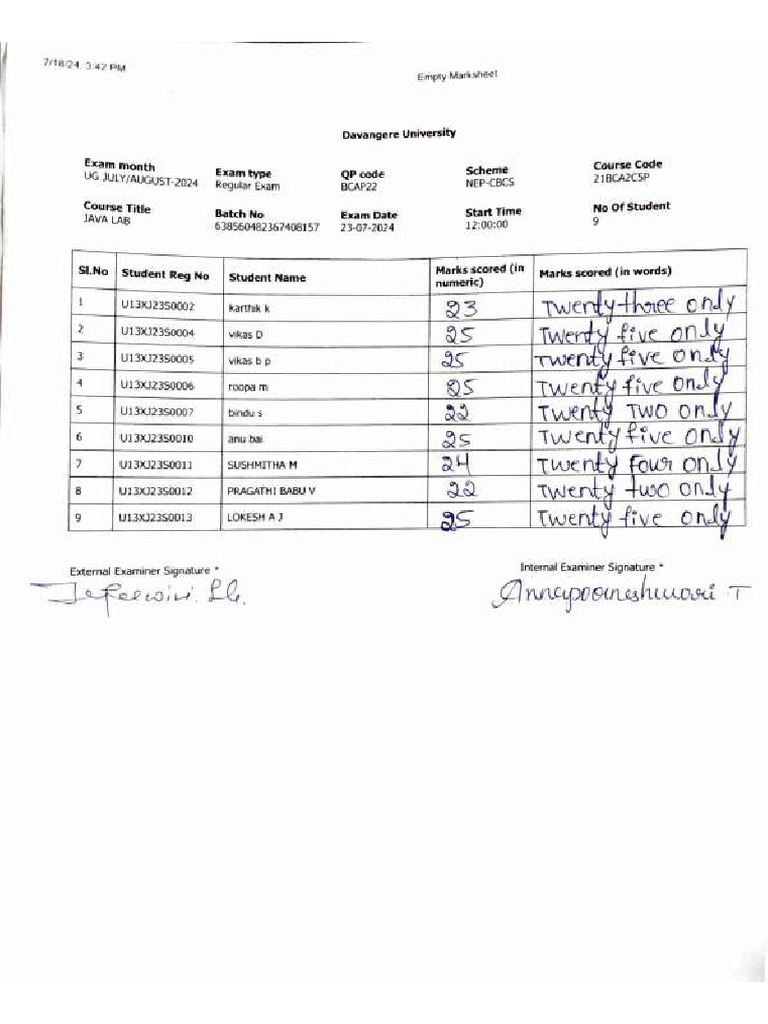 7/18/24, 3:42 PM
Empty Marksheet
Davangere University
Exam month Exam type QP code Scheme Course Code
UG JULY/AUGUST-2024 Regular Exam BCAP22 NEP-CBCS 21BCA2C5P
Course Title Batch No Exam Date Start Time No Of Student
JAVA LAB 638560482367408157 23-07-2024 12:00:00 9
Sl.No Student Reg No Student Name Marks scored (in numeric) Marks scored (in words)
1 U13XJ23S0002 karthik k 23 Twenty three only
2 U13XJ23S0004 vikas D 25 Twenty five only
3 U13XJ23S0005 vikas b p 25 Twenty five only
4 U13XJ23S0006 roopa m 25 Twenty five only
5 U13XJ23S0007 bindu s 22 Twenty Two only
6 U13XJ23S0010 anu bai 25 Twenty five only
7 U13XJ23S0011 SUSHMITHA M 24 Twenty four only
8 U13XJ23S0012 PRAGATHI BABU V 22 Twenty two only
9 U13XJ23S0013 LOKESH A J 25 Twenty five only
External Examiner Signature * Internal Examiner Signature *
Annapoorneshwari T